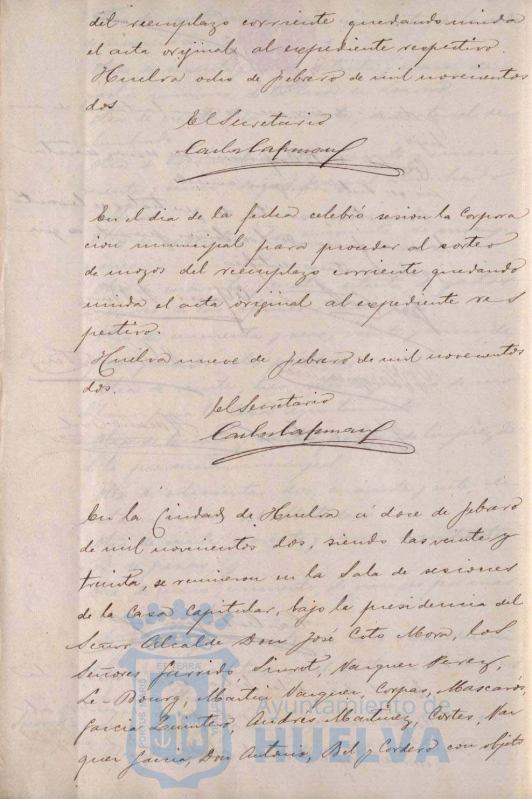 del reemplazo corriente quedando unida
el acta original al expediente respectivo.
Huelva ocho de febrero de mil novecientos
dos
El Secretario
Carlos
En el dia de la fecha celebró sesion la Corpora
cion municipal para proceder al sorteo
de mozos del reemplazo corriente quedando
unida el acta original al expediente res
pectivo.
Huelva nueve de febrero de mil novecientos
dos.
El Secretario
Carlos
En la Ciudad de Huelva á doce de febrero
de mil novecientos dos, siendo las veinte y
treinta, se reunieron en la Sala de sesiones
de la Casa Capitular, bajo la presidencia del
Señor Alcalde Don José Coto Mora, los
Señores Garrido, Siurot, Vazquez Perez,
Le-Bourg, Martin Vazquez, Corpas, Mascarós,
Garcia Quintero, Andres Martinez, Cortes, Vaz
quez Garcia, Don Antonio, Bel y Cordero con objeto
Ayuntamiento de
HUELVA